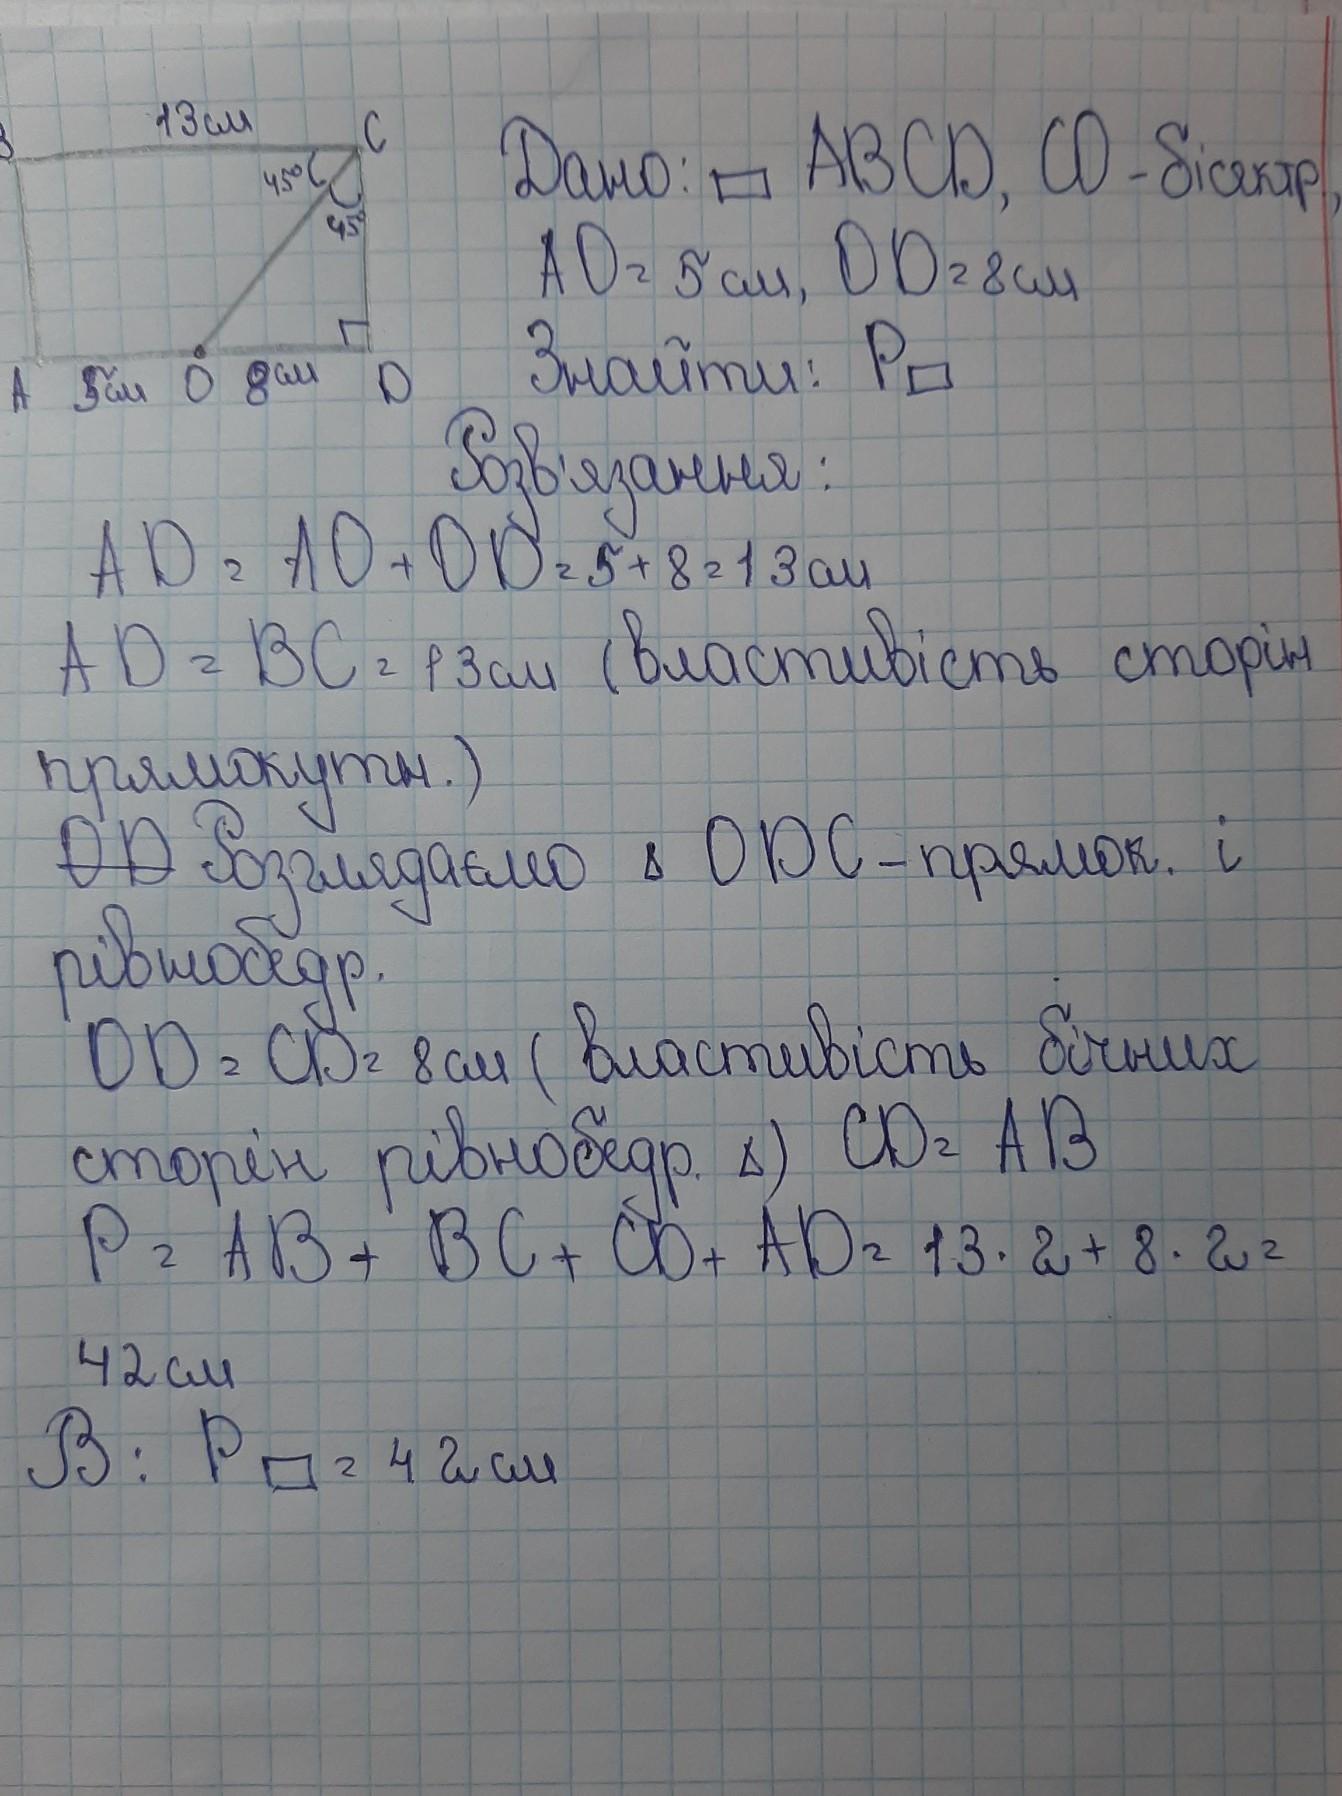 13см
B
C
45°
45°
A 5см O 8см D
Дано: ▭ ABCD, CO - бісектр.,
AO = 5см, OD = 8см
Знайти: P▭
Розв'язання:
AD = AO + OD = 5 + 8 = 13см
AD = BC = 13см (властивість сторін
прямокутн.)
OD Розглядаємо Δ ODC - прямок. і
рівнобедр.
OD = CD = 8см (властивість бічних
сторін рівнобедр. Δ) CD = AB
P = AB + BC + CD + AD = 13 · 2 + 8 · 2 =
42см
В: P▭ = 42см